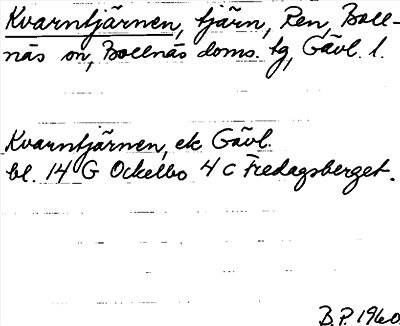 Kvarntjärnen, tjärn, Ren, Boll-
näs sn, Bollnäs doms. tg, Gävl. l.
Kvarntjärnen, ek Gävl.
bl. 14 G Ockelbo 4 c Fredagsberget.
B.P. 1960